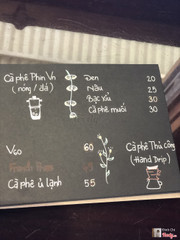 Cà phê Phin VN
(nóng / đá)
Đen 20
Nâu 25
Bạc Xỉu 30
Cà phê muối 30
V60 60
Cà phê ủ lạnh 55
Cà phê Thủ công
(Hand Drip)